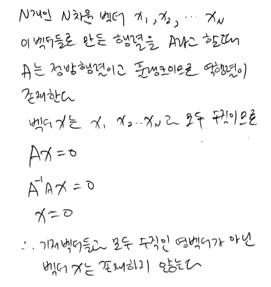 N개의 N차원 벡터 x₁, x₂, ··· xₙ
이 벡터들로 만든 행렬을 A라고 할때
A는 정방행렬이고 풀랭크이므로 역행렬이
존재한다
벡터 x는 x₁ x₂ ··· xₙ과 모두 수직이므로
Ax = 0
A⁻¹Ax = 0
x = 0
∴ 기저벡터들과 모두 수직인 영벡터가 아닌
벡터 x는 존재하지 않는다